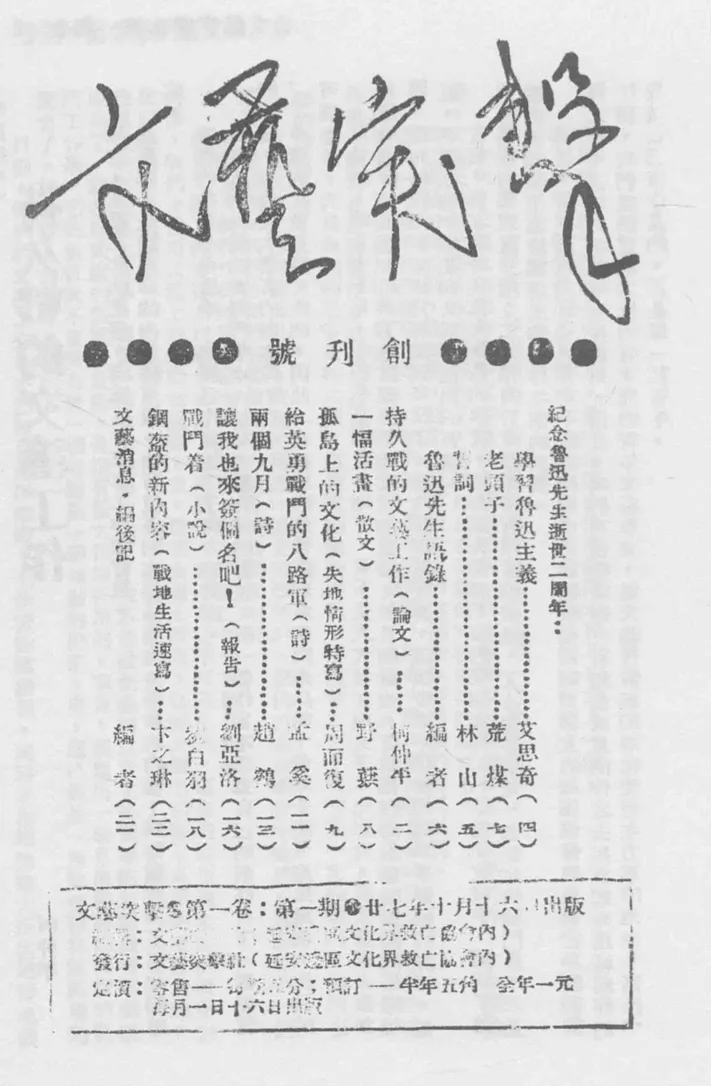 文藝突擊
創刊號
紀念魯迅先生逝世二周年：
學習魯迅主義……艾思奇（四）
老頭子……荒煤（七）
詞……林山（五）
魯迅先生語錄……編者（六）
持久戰的文藝工作（論文）……柯仲平（二）
一幅活畫（散文）……野蕻（八）
孤島上的文化（失地情形特寫）……周而復（九）
給英勇戰鬥的八路軍（詩）……孟奚（一一）
兩個九月（詩）……趙鶴（一三）
讓我也來簽個名吧！（報告）……劉亞洛（一六）
戰鬥着（小說）……劉白羽（一八）
鋼盔的新內容（戰地生活速寫）……卞之琳（二二）
文藝消息·編後記 編者（二一）
文藝突擊第一卷：第一期 廿七年十月十六日出版
：文藝（延安邊區文化界救亡協會內）
發行：文藝突擊社（延安邊區文化界救亡協會內）
定價：零售——每期五分；預訂——半年五角 全年一元
每月一日十六日出版